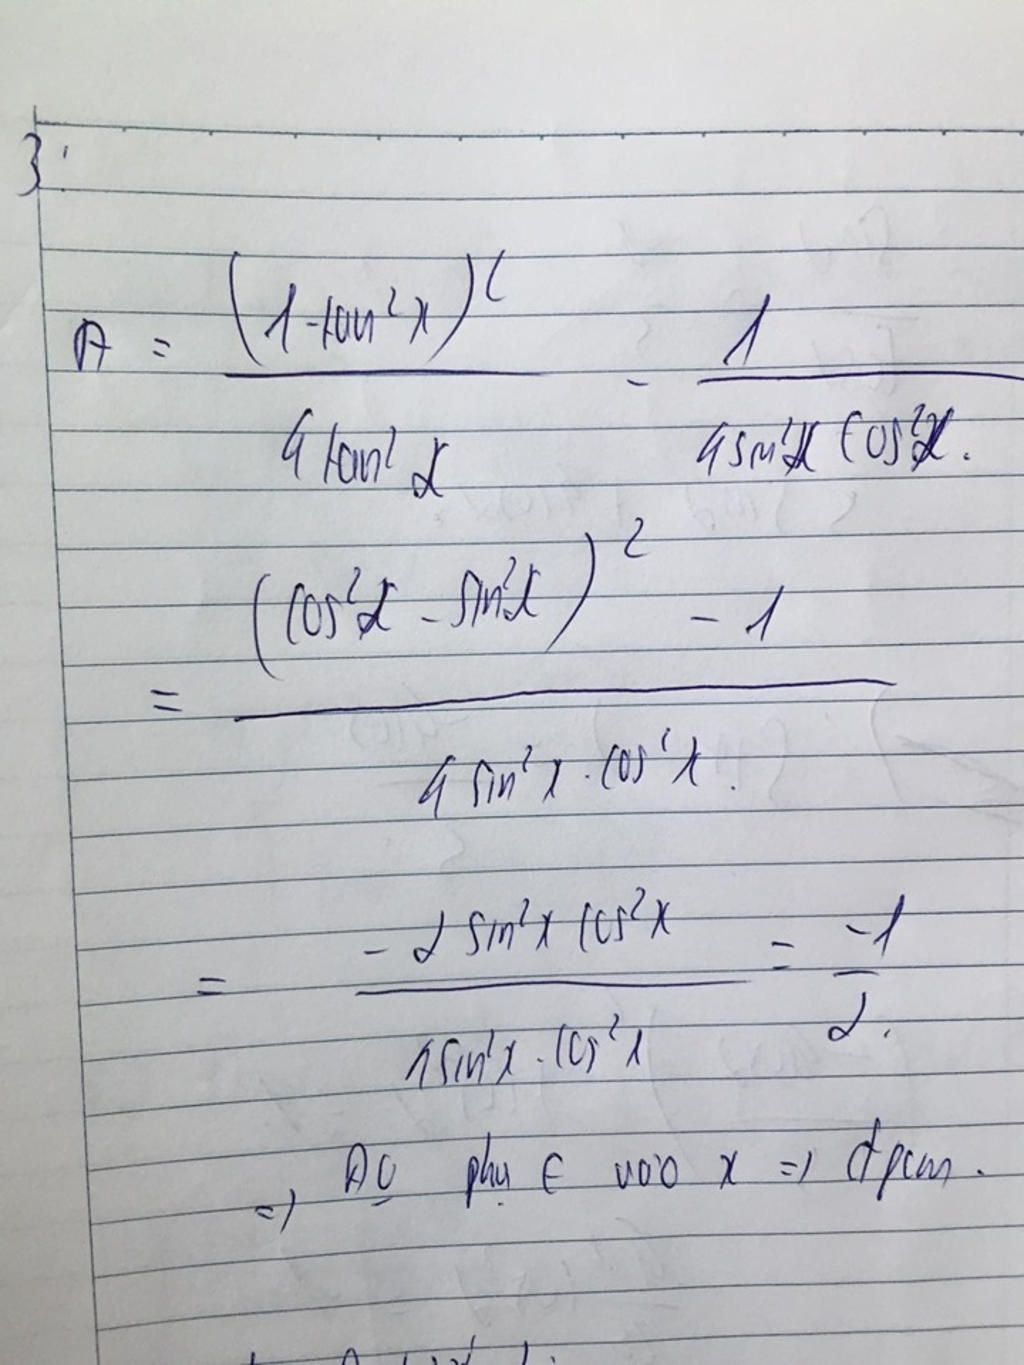 3:
A = (1 - tan²x)² / 4 tan²x - 1 / 4 sin²x cos²x.
= (cos²x - sin²x)² - 1 / 4 sin²x . cos²x.
= - 2 sin²x cos²x / 4 sin²x . cos²x = -1 / 2.
=> A O phụ ∈ vào x => đpcm.